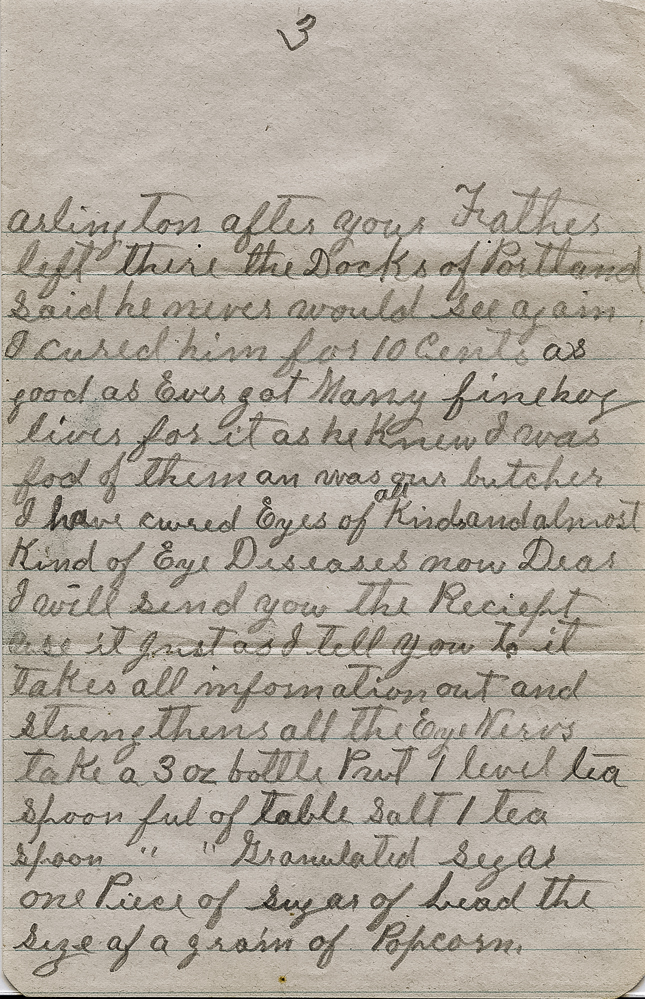 3
arlington after your Father
left there the Docks of Portland
said he never would see again
I cured him for 10 Cents as
good as Ever got Many fine hog
livers for it as he Knew I was
fod of them an was our butcher
I have cured Eyes of all Kinds and almost
Kind of Eye Diseases now Dear
I will send you the Reciept
use it Just as I tell you to it
takes all infomation out and
strengthens all the Eye Nervs
take a 3 oz bottle Put 1 level tea
spoon ful of table salt 1 tea
spoon " " Granulated segar
one Piece of sugar of Lead the
size of a grain of Popcorn.